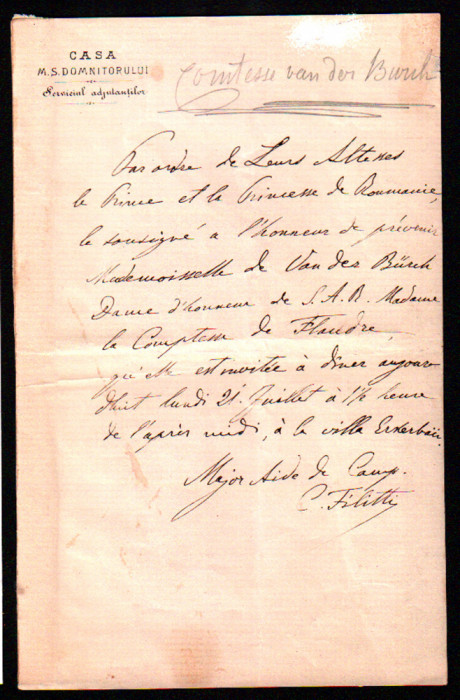 CASA
M.S. DOMNITORULUI
Serviciul adjutanților
Comtesse van der Burch
Par ordre de Leurs Altesses
le Prince et la Princesse de Roumanie,
le soussigné a l'honneur de prévenir
Mademoiselle de Van der Bürch
Dame d'honneur de S.A.R. Madame
la Comptesse de Flandre,
qu'elle est invitée à diner aujour
d'huit lundi 21. Juillet à 1½ heure
de l'après midi, à la villa
Major Aide de Camp.
C. Filitti